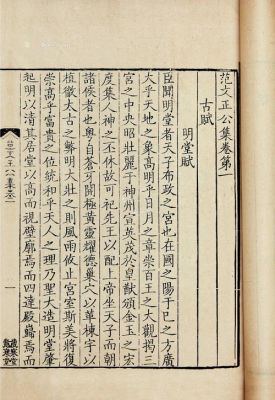 范文正公集卷第一
古賦
明堂賦
臣聞明堂者天子布政之宮也在國之陽于巳之方廣
大乎天地之象高明乎日月之章崇百王之大觀揭三
宮之中央昭壯麗于神州宣英茂於皇猷頒金玉之宏
度集人神之丕休故可祀先王以配上帝坐天子而朝
諸侯者也粵自蒼牙開極黃靈耀德巢穴以革棟宇以
植徹太古之弊明大壯之則風雨攸止宮室斯美將復
崇高乎富貴之位統和乎天人之理乃聖大造明堂肇
起明以清其居堂以高而視壁廓焉而四達殿巋焉而
一